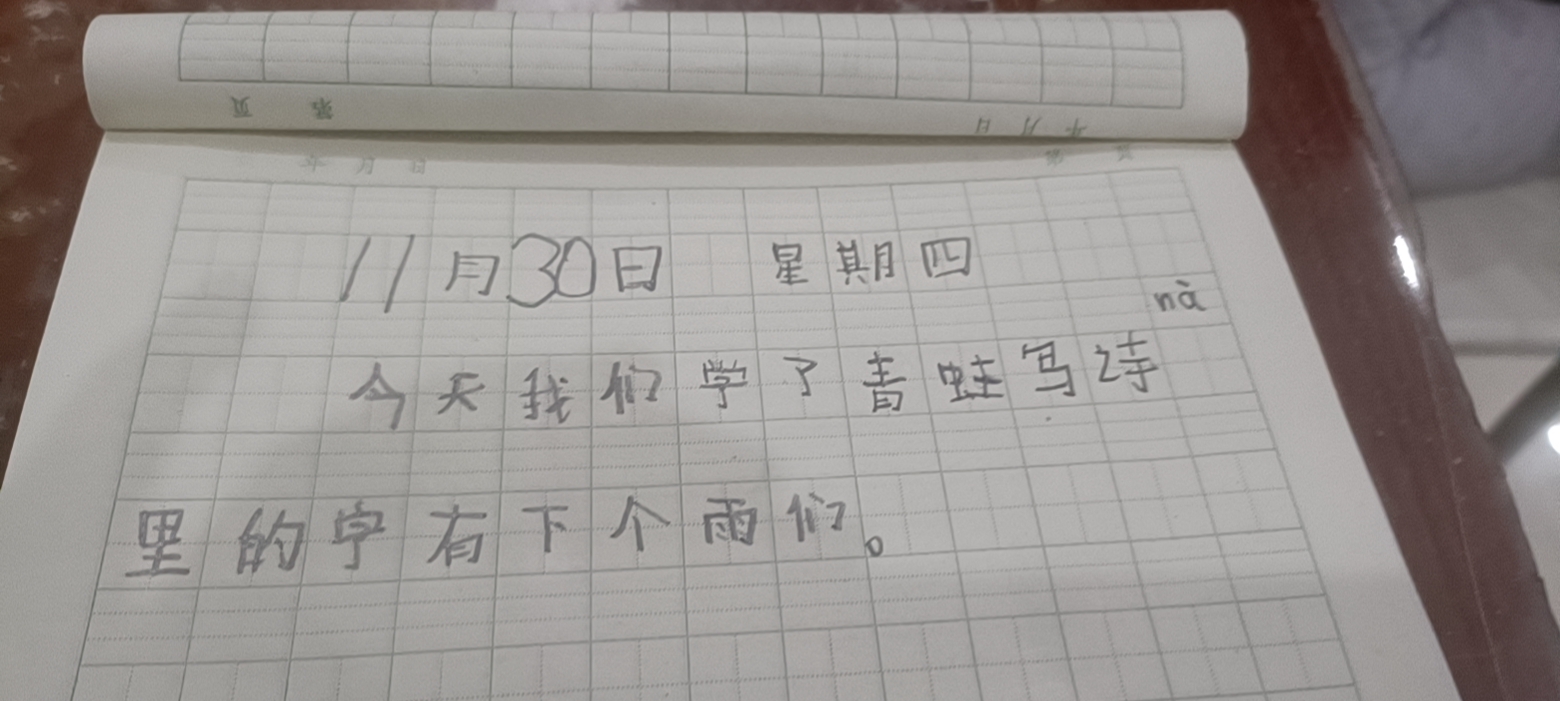 页 第
年 月 日
年 月 日 第 页
11月30日 星期四
nà
今天我们学了青蛙写诗
里的字有下个雨们。